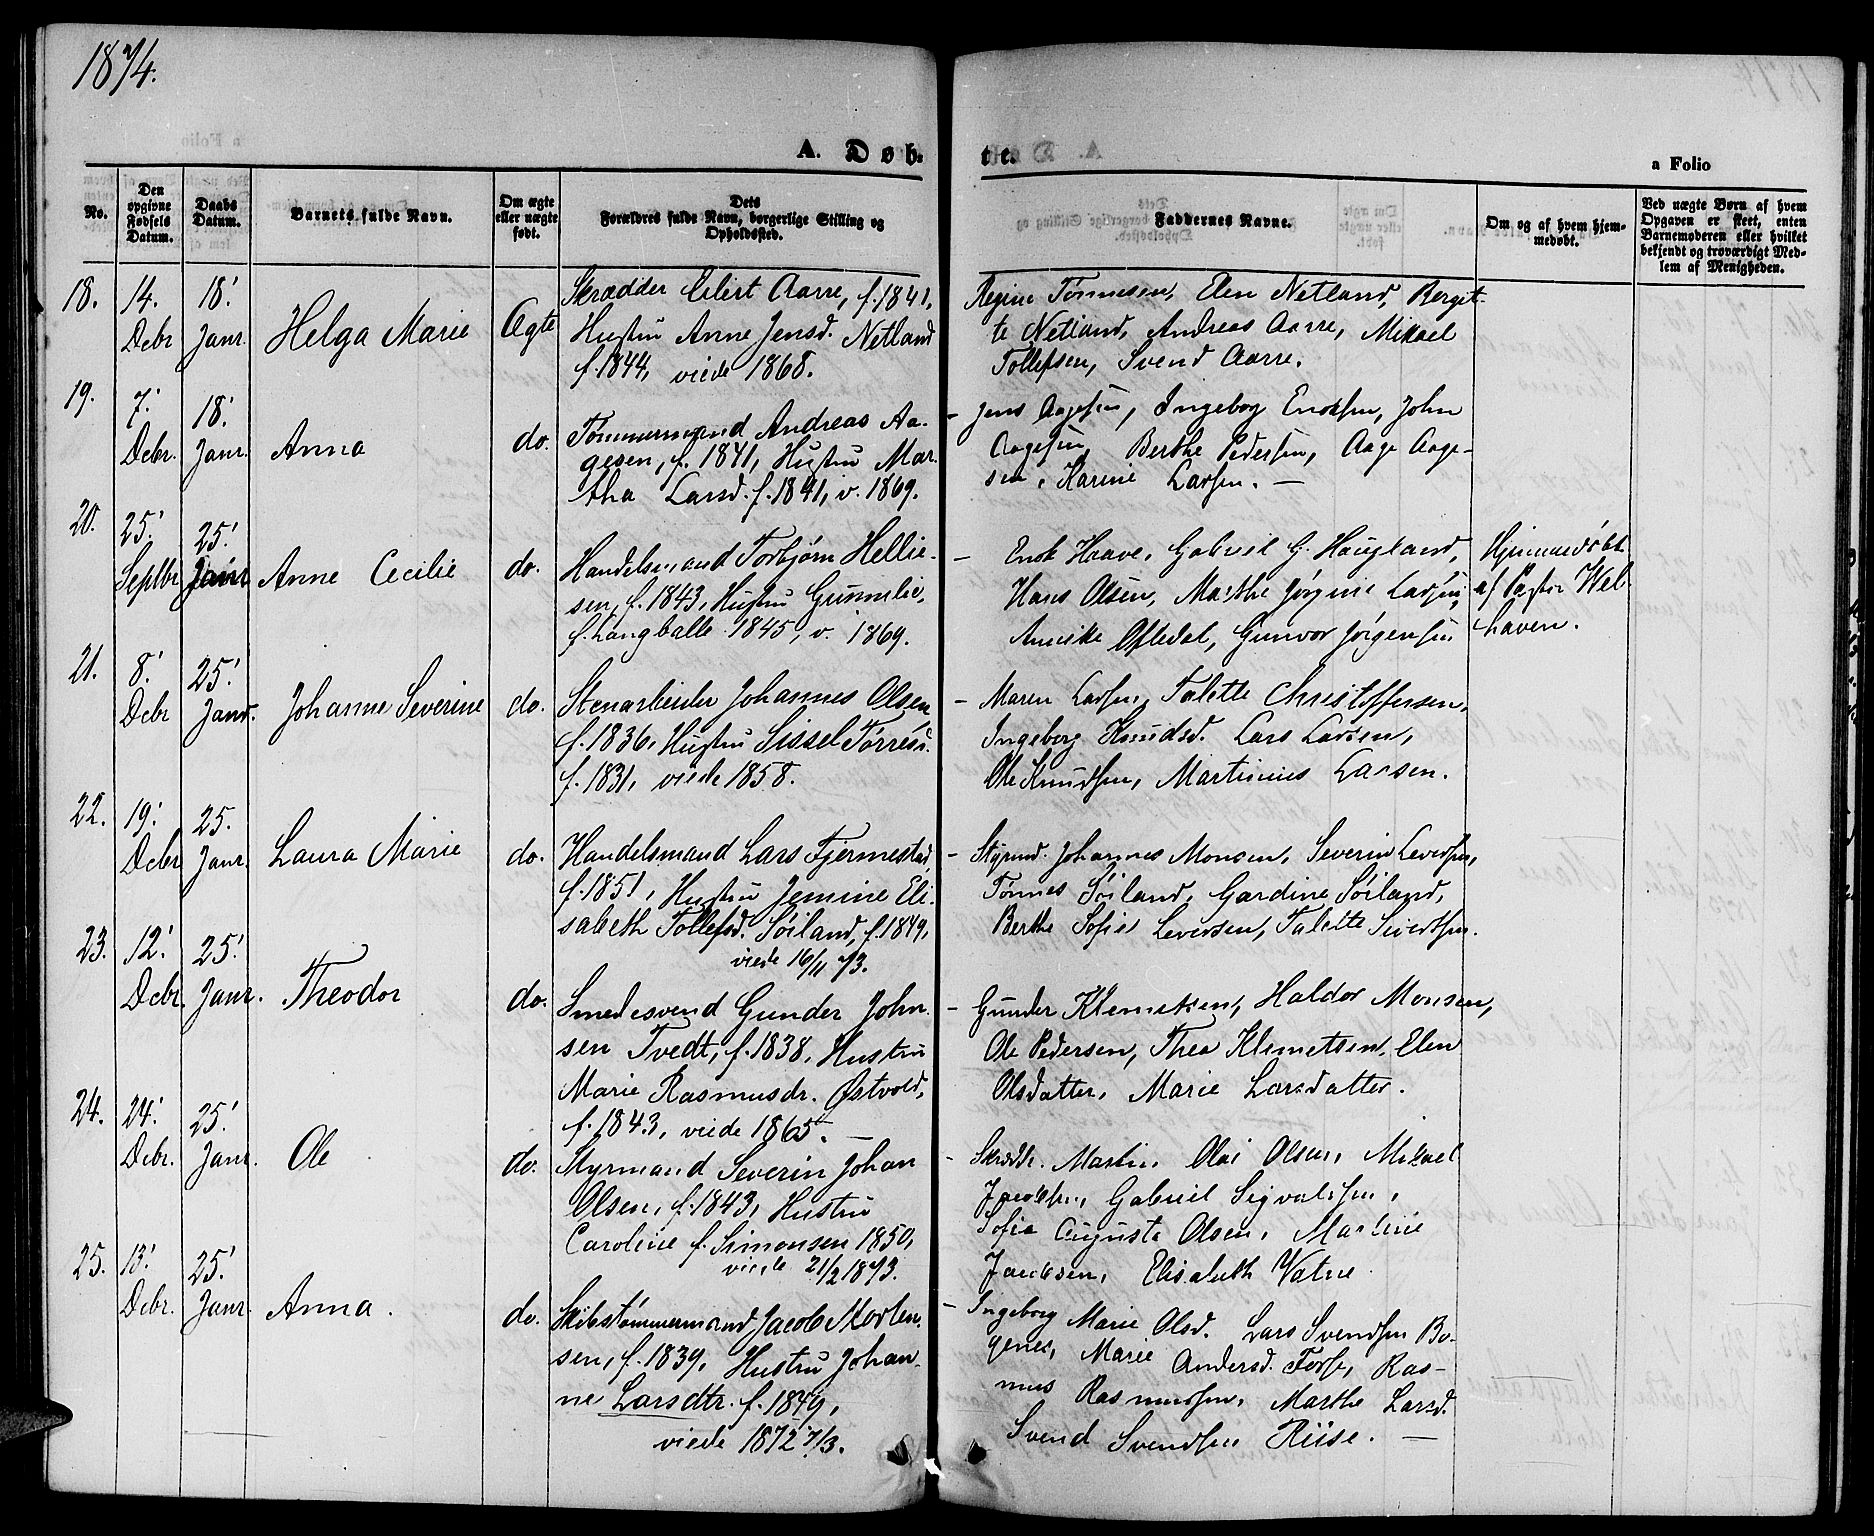 1874.
A. Døb-
te.
a Folio
No.
Den opgivne Fødsels Datum.
Daabs Datum.
Barnets fulde Navn.
Om ægte eller uægte født.
Dets Forældres fulde Navn, borgerlige Stilling og Opholdssted.
Faddernes Navne.
Om og af hvem hjemmedøbt.
Ved uægte Børn af hvem Opgaven er skeet, enten Barnemoderen eller hvilket bekjendt og troværdigt Medlem af Menigheden.
18. 14. Debr 18. Janr. Helga Marie Ægte
Skrædder Eilert Aarre, f. 1841,
Hustru Anne Jensd. Netland
f. 1844, viede 1868.
Regine Tønnesen, Elen Netland, Bergit-
te Netland, Andreas Aarre, Mikael
Tollefsen, Svend Aarre.
19. 7. Debr. 18. Janr. Anna do.
Tømmermand Andreas Aa-
gesen, f. 1841, Hustru Mar-
tha Larsd. f. 1841, v. 1869.
- Jens Aagesen, Ingeborg Enoksen, John
Aagesen, Berthe Pedersen, Aage Aage-
sen, Karine Larsen. -
20. 25. Septbr 25. Janr Anne Cecilie do.
Handelsmand Torbjørn Hellie-
sen, f. 1843, Hustru Gunnilie,
f. Langballe 1845, v. 1869.
- Enok Haave, Gabriel G. Haugland,
Hans Olsen, Marthe Jørgine Larsen,
Oftedal, Gunvor Jørgensen
Hjemmedøbt
af Pastor Wel-
haven.
21. 8. Debr 25. Janr. Johanne Severine do.
Stenarbeider Johannes Olsen
f. 1836, Hustru Sissel Tørresd.
f. 1831, viede 1858.
- Maren Larsen, Talette Christoffersen,
Ingeborg Knudsd. Lars Larsen,
Ole Knudsen, Martinius Larsen.
22. 19. Debr 25. Janr. Laura Marie do.
Handelsmand Lars Fjermestad,
f. 1851, Hustru Jemine Eli-
sabeth Tollefsd. Søiland, f. 1849,
viede 16/11 73.
- Styrmd. Johannes Monsen, Severin Leversen,
Tønnes Søiland, Gardine Søiland,
Berthe Sofie Leversen, Talette Sivertsen.
23. 12. Debr. 25. Janr. Theodor do.
Smedesvend Gunder John-
sen Tvedt, f. 1838, Hustru
Marie Rasmusdr. Østvold,
f. 1843, viede 1865. -
- Gunder Klemetsen, Haldor Monsen,
Ole Pedersen, Thea Klemetsen, Elen
Olsdatter, Marie Larsdatter.
24. 24. Debr. 25. Janr. Ole do.
Styrmand Severin Johan
Olsen, f. 1843, Hustru
Caroline f. Simonsen 1850,
viede 21/2 1873.
- Skrædder. Martin Olai Olsen, Mikael
Jacobsen, Gabriel Sigvaldsen,
Sofie Augusta Olsen, Martine
Jacobsen, Elisabeth Vatne.
25. 13. Debr. 25. Janr. Anna. do.
Skibstømmermand Jacob Morten-
sen, f. 1839, Hustru Johan-
ne Larsdtr. f. 1849,
viede 1872 7/3.
- Ingeborg Marie Olsd. Lars Svendsen Bo-
genes, Marie Andersd. Ras-
mus Rasmussen, Marthe Larsd.
Svend Svendsen Riise. -